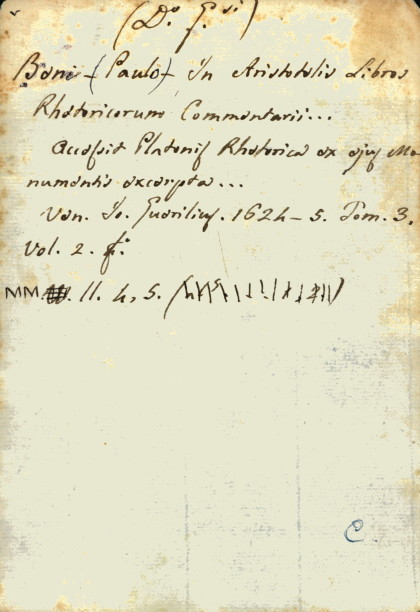 (D.º G.si)
Beni (Paulo) In Aristotelis Libros
Rhetoricorum Commentarii...
Accessit Platonis Rhetorica ex ejus Mo
numentis excerpta...
Ven. Io. Guerilius. 1624-5. Tom. 3.
Vol. 2. f.º
MM. II. 4, 5.
C